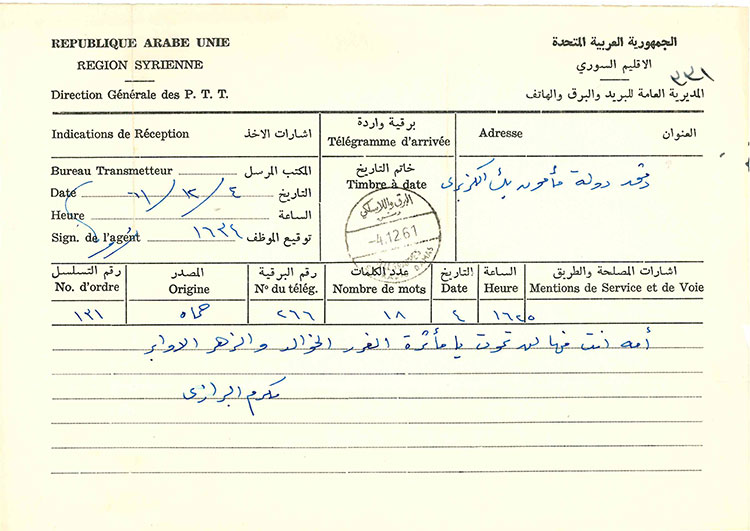 REPUBLIQUE ARABE UNIE
REGION SYRIENNE
Direction Générale des P. T. T.
الجمهورية العربية المتحدة
الاقليم السوري
المديرية العامة للبريد والبرق والهاتف
٣٣١
Indications de Réception اشارات الاخذ
برقية واردة
Télégramme d'arrivée
Adresse العنوان
Bureau Transmetteur المكتب المرسل
Date ٤/١٢/٦١ التاريخ
Heure الساعة
Sign. de l'agent ١٦٣٤ توقيع الموظف
خاتم التاريخ
Timbre à date
البرق واللاسلكي
-4.12.61
دولة مأمون بك الكزبري
رقم التسلسل المصدر رقم البرقية عدد الكلمات التاريخ الساعة اشارات المصلحة والطريق
No. d'ordre Origine No du télég. Nombre de mots Date Heure Mentions de Service et de Voie
١٣١ حماه ٢٦٦ ١٨ ٤ ١٦٢٥
أمه انت فيها لن تموت يا مأثرة الغرر الخوالد والزهر الاوابد
مكرم البرازي